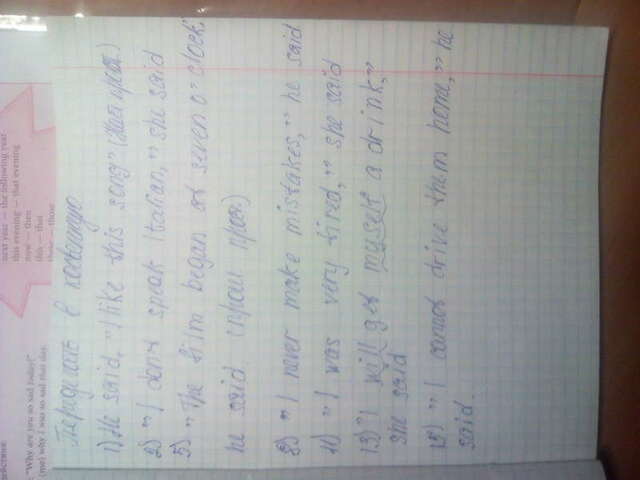 next year — the following year
this evening — that evening
now — then
this — that
these — those
"Why are you so sad today?"
(me) why I was so sad that day.
Переделать в косвенную
1) He said, "I like this song"
2) "I don't speak Italian," she said
5) "The film began at seven o'clock,"
he said
8) "I never make mistakes," he said
11) "I was very tired," she said
13) "I will get myself a drink,"
she said
15) "I cannot drive them home," he
said.